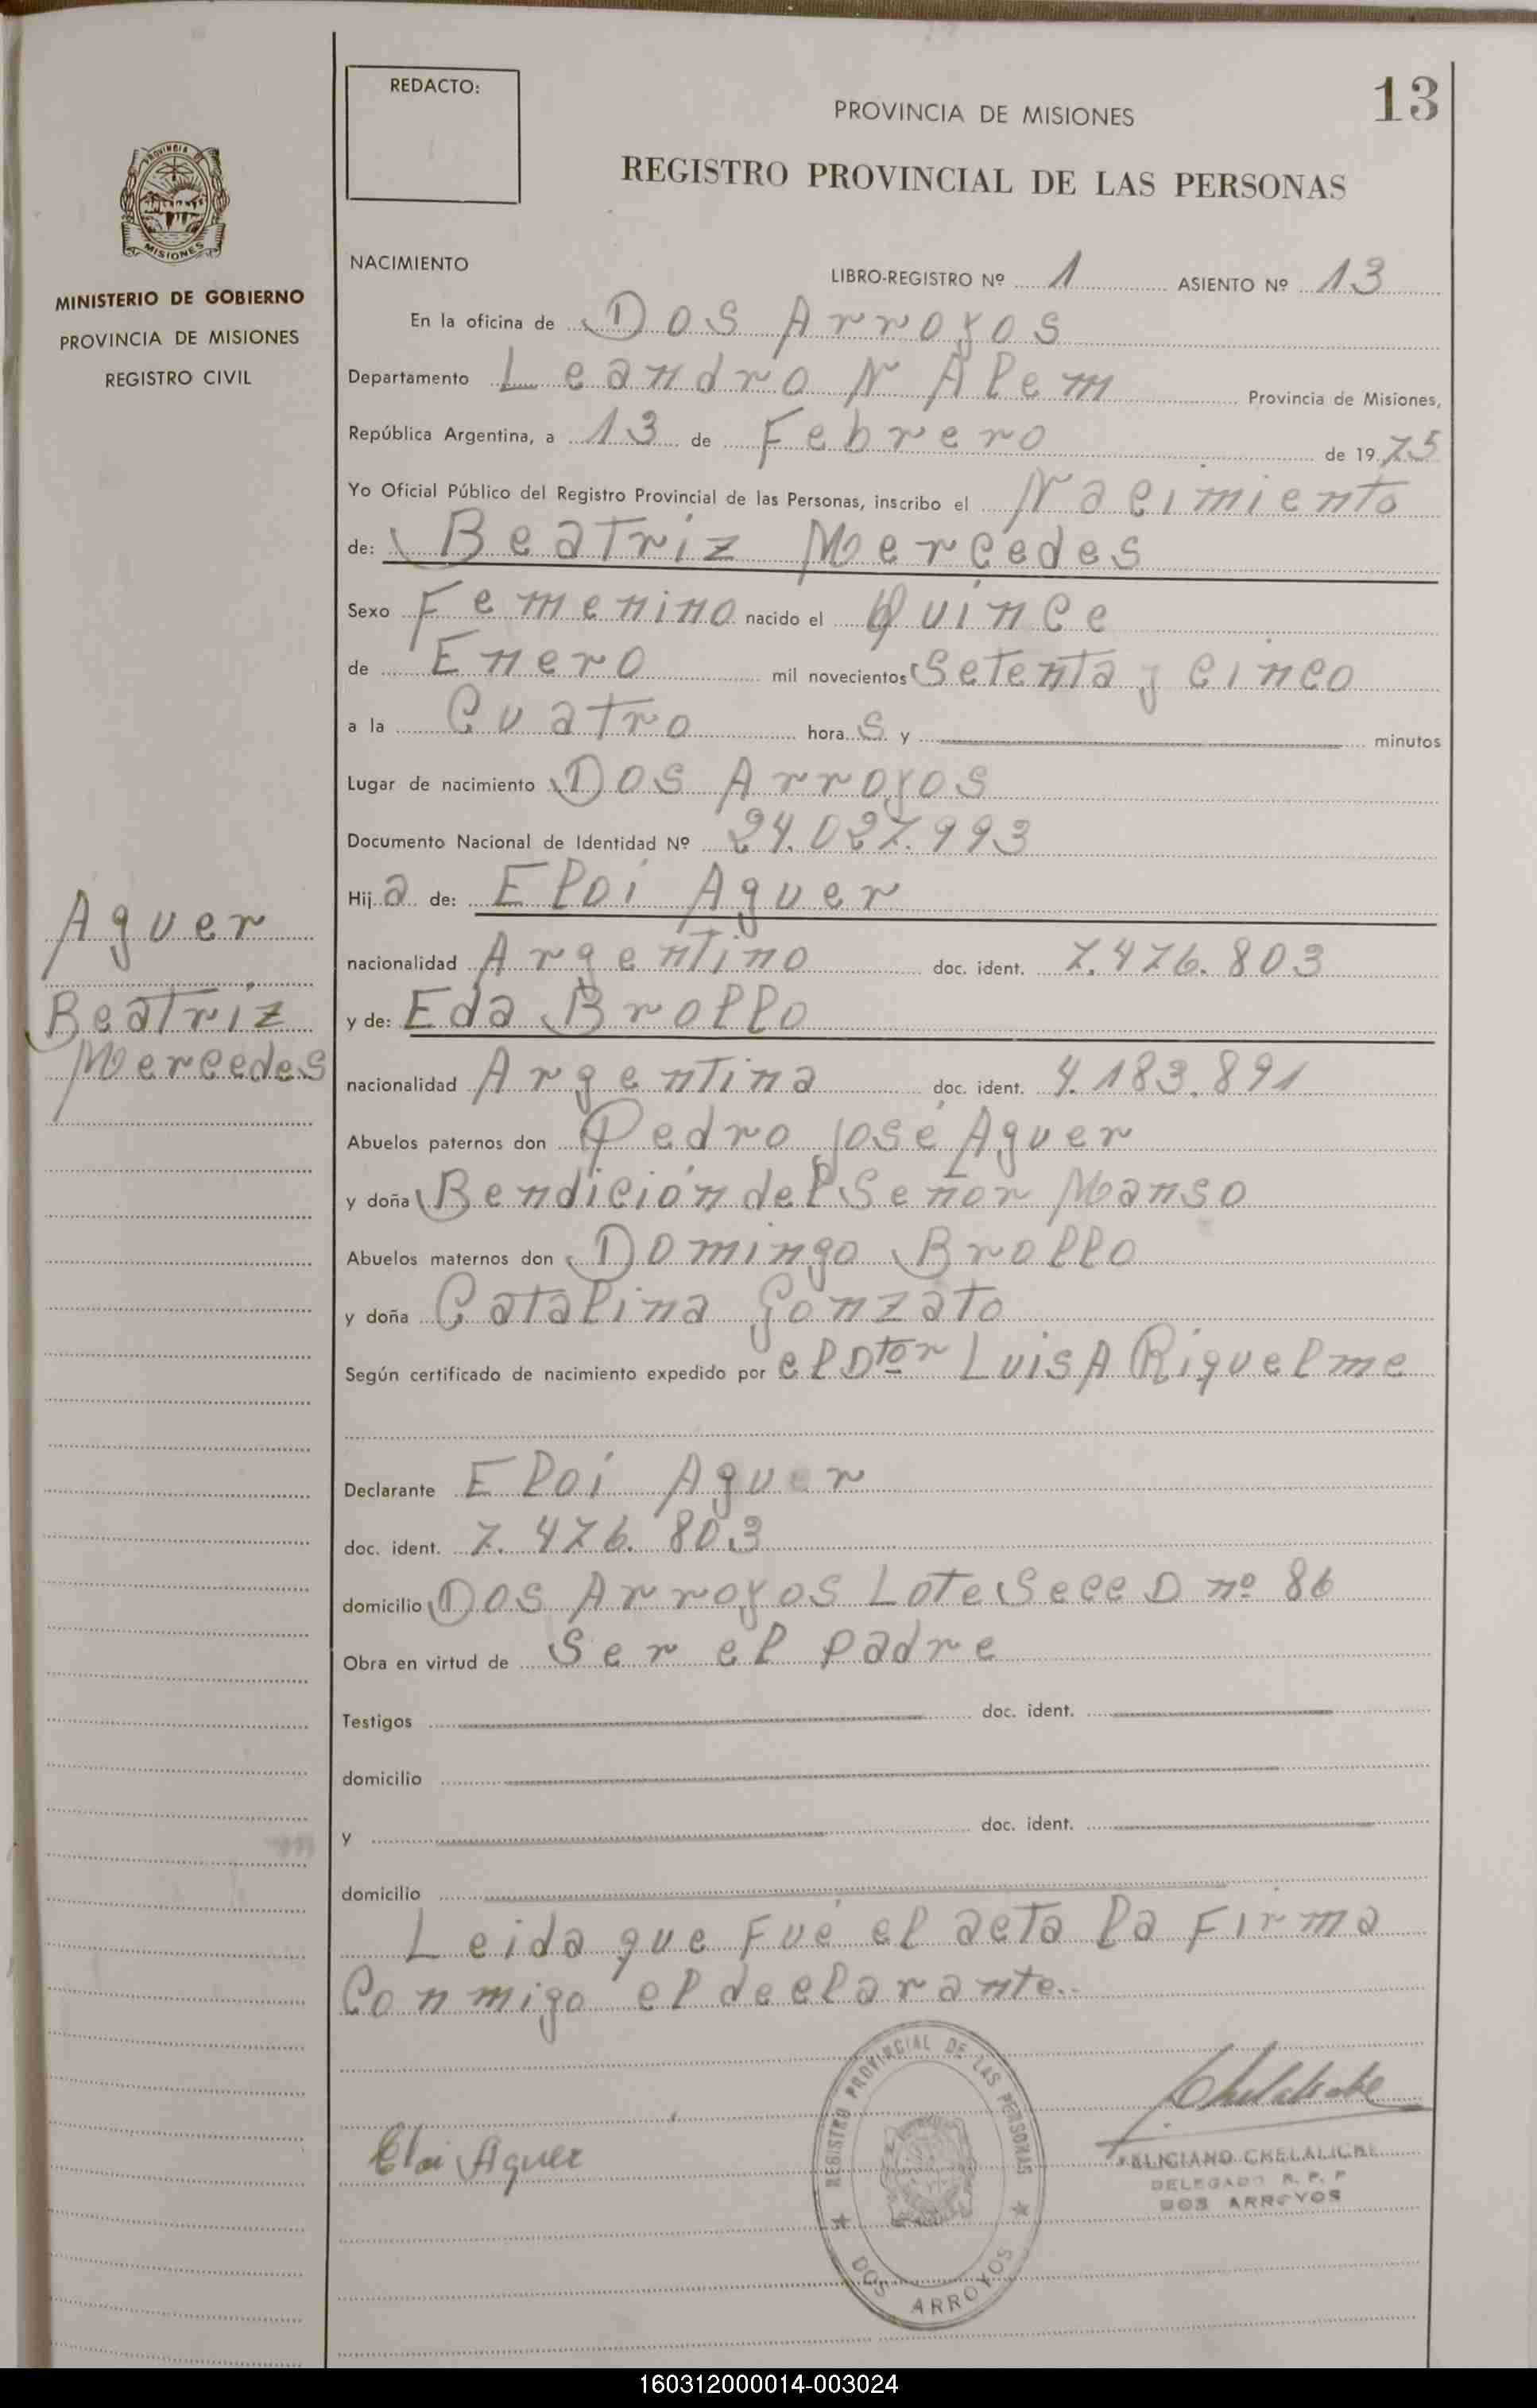 REDACTO:
13
PROVINCIA DE MISIONES
REGISTRO PROVINCIAL DE LAS PERSONAS
PROVINCIA DE
MISIONES
MINISTERIO DE GOBIERNO
PROVINCIA DE MISIONES
REGISTRO CIVIL
NACIMIENTO LIBRO-REGISTRO Nº 1 ASIENTO Nº 13
En la oficina de Dos Arroyos
Departamento Leandro N Alem Provincia de Misiones,
República Argentina, a 13 de Febrero de 1975
Yo Oficial Público del Registro Provincial de las Personas, inscribo el Nacimiento
de: Beatriz Mercedes
Sexo Femenino nacido el Quince
de Enero mil novecientos Setenta y cinco
a la Cuatro hora s y minutos
Lugar de nacimiento Dos Arroyos
Documento Nacional de Identidad Nº 24.027.993
Hij a de: Eloi Aguer
nacionalidad Argentino doc. ident. 7.476.803
y de: Eda Brollo
nacionalidad Argentina doc. ident. 4.183.891
Aguer
Beatriz
Mercedes
Abuelos paternos don Pedro José Aguer
y doña Bendición del Señor Manso
Abuelos maternos don Domingo Brollo
y doña Catalina Gonzato
Según certificado de nacimiento expedido por el Dtor Luis A Riquelme
Declarante Eloi Aguer
doc. ident. 7.476.803
domicilio Dos Arroyos Lote Secc D nº 86
Obra en virtud de Ser el padre
Testigos doc. ident.
domicilio
y doc. ident.
domicilio
Leida que Fué el acta la Firma
Conmigo el declarante.
REGISTRO PROVINCIAL DE LAS PERSONAS
DOS ARROYOS
Eloi Aguer
FELICIANO CHELALICHE
DELEGADO R. P. P
DOS ARROYOS
160312000014-003024